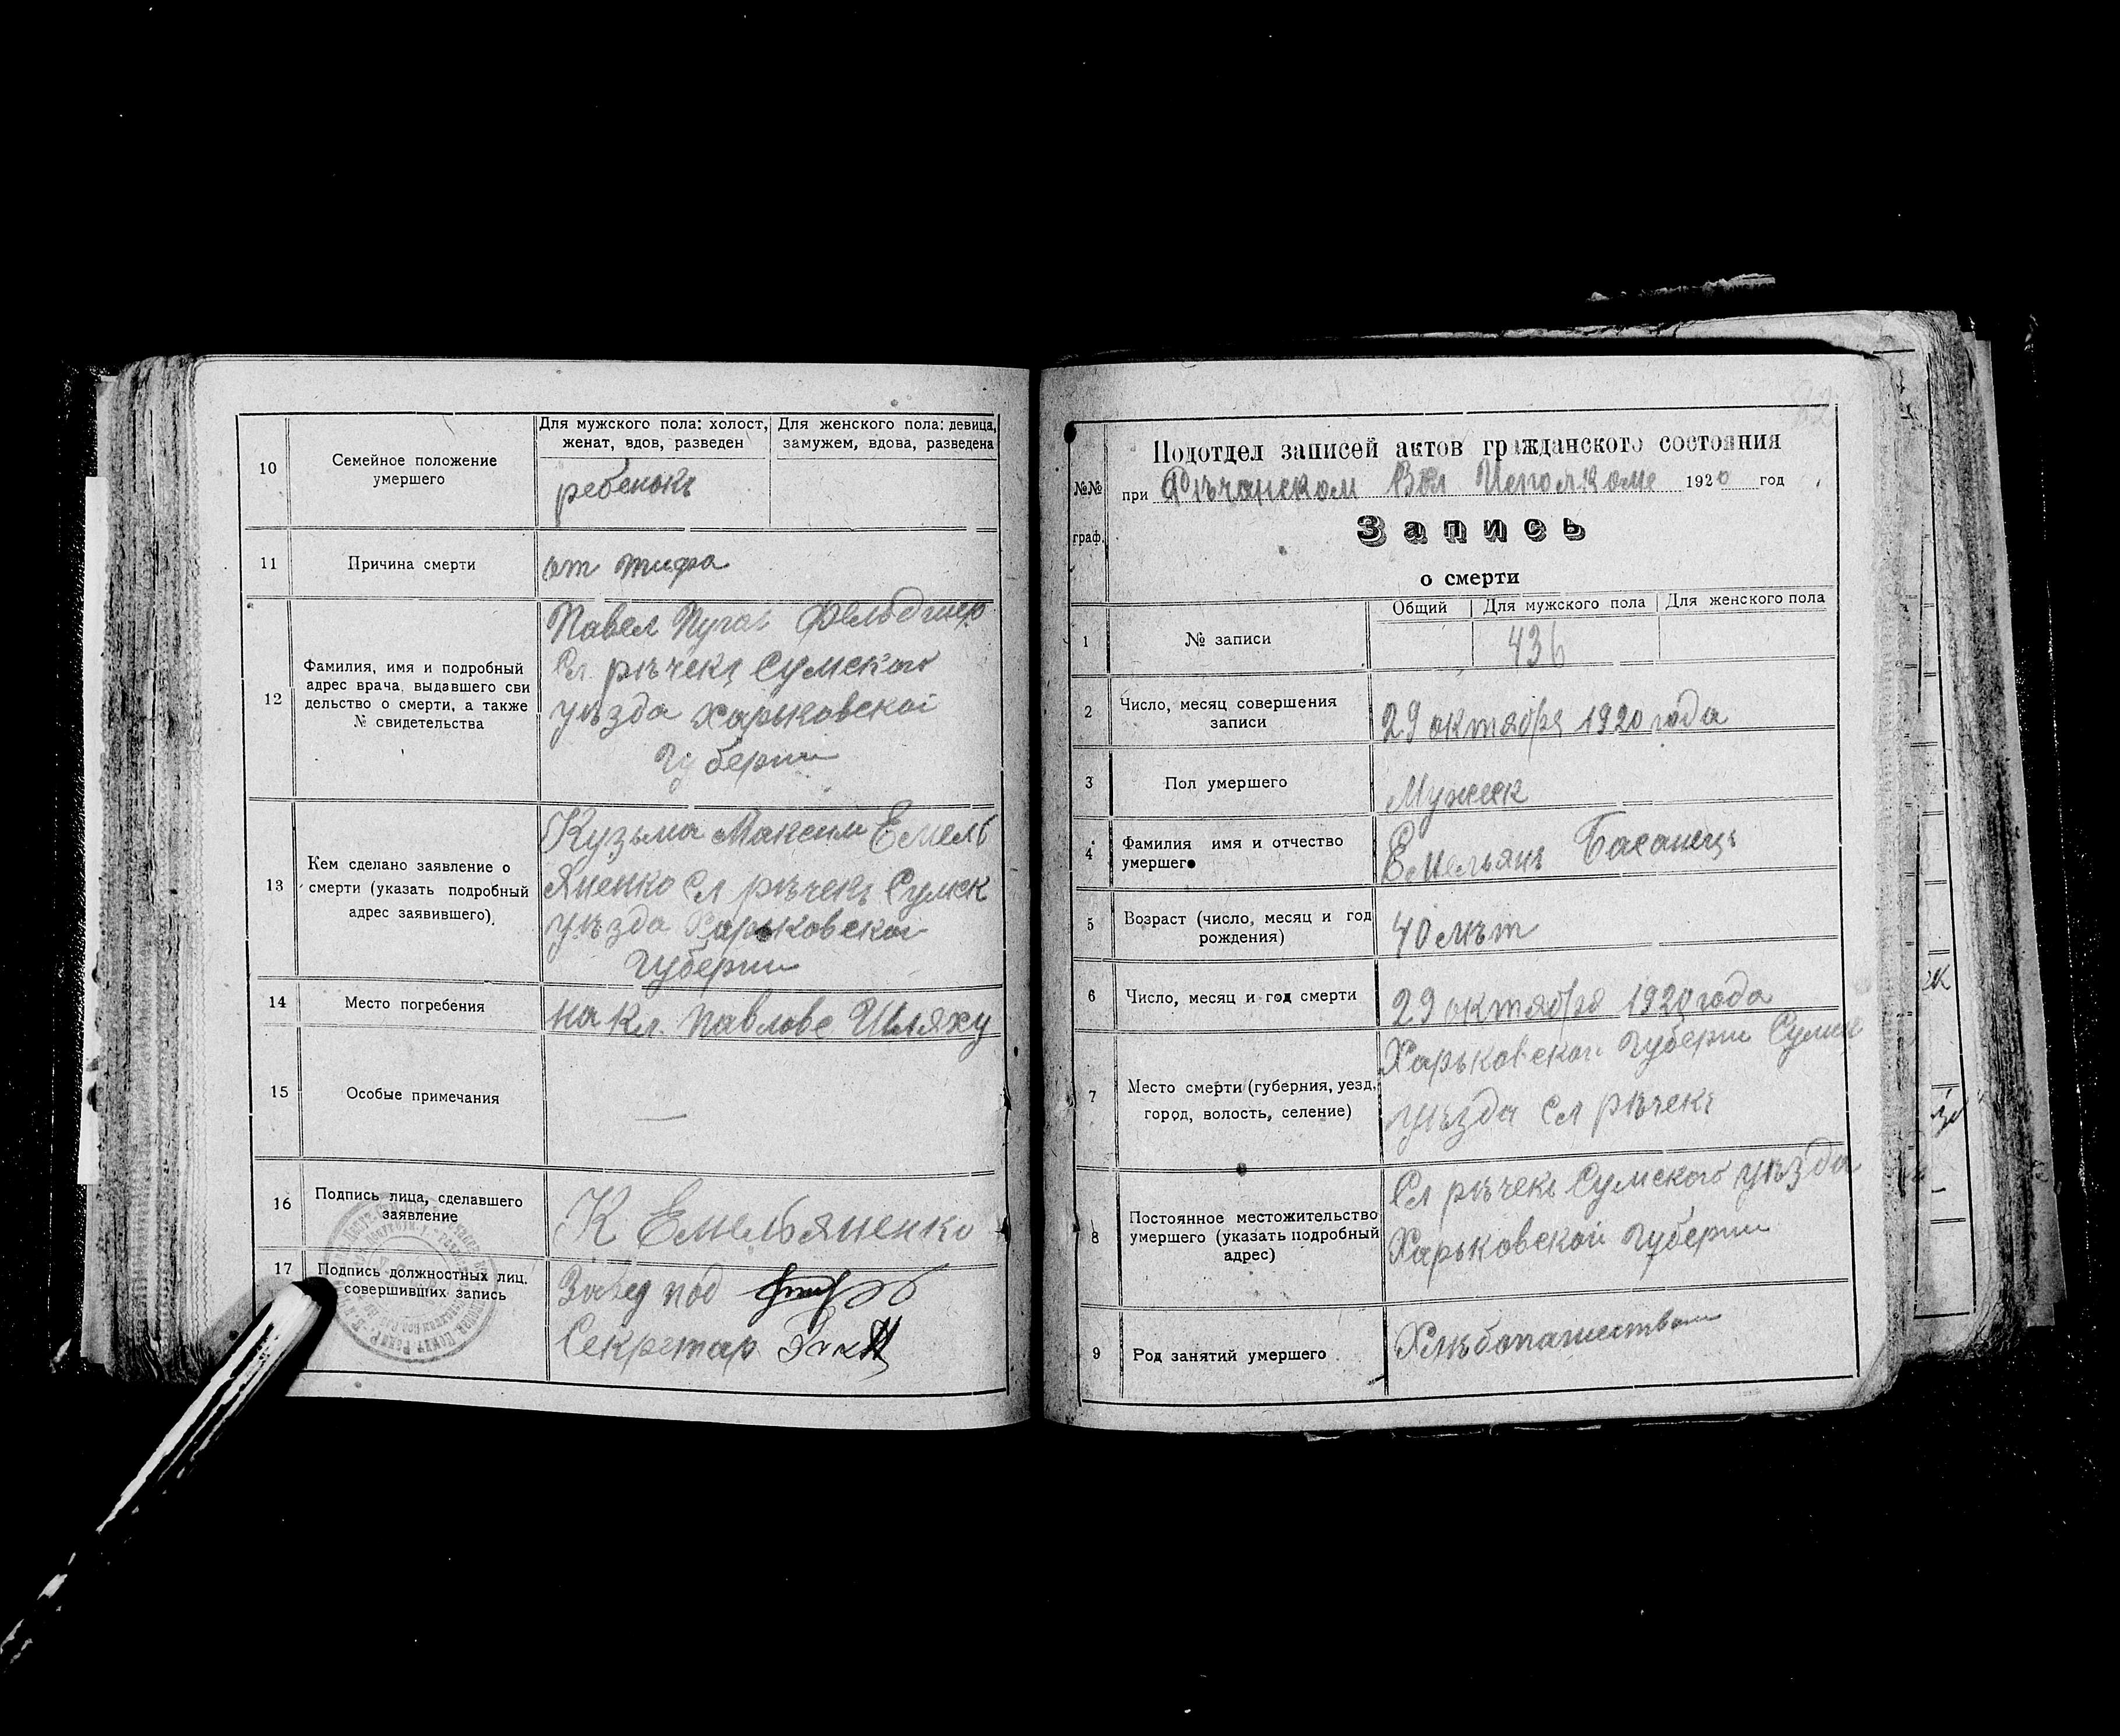 10
Семейное положение
умершего
Для мужского пола: холост,
женат, вдов, разведен
Для женского пола: девица,
замужем, вдова, разведена
ребенокъ
11
Причина смерти
от тифа
12
Фамилия, имя и подробный
адрес врача, выдавшего сви
дельство о смерти, а также
№ свидетельства
Павел Пугач Фельдшер
Сл. рѣчекъ Сумского
уѣзда Харьковской
Губерни
13
Кем сделано заявление о
смерти (указать подробный
адрес заявившего).
Кузьма Максим Емель
Яненко Сл рѣчекъ Сумск
уѣзда Харьковской
Губерни
14
Место погребения
на кл. Павлове Шляху
15
Особые примечания
—
16
Подпись лица, сделавшего
заявление
К Емельяненко
17
Подпись должностных лиц.
совершивших запись
Завед под
Секретар
№№
граф.
Подотдел записей актов гражданского состояния
при Рѣчанском Вол Исполкоме 1920 год
Запись
о смерти
Общий
Для мужского пола
Для женского пола
1
№ записи
436
2
Число, месяц совершения
записи
29 октября 1920 года
3
Пол умершего
Мужеск
4
Фамилия имя и отчество
умершего
Емельянъ Басанецъ
5
Возраст (число, месяц и год
рождения)
40 лѣт
6
Число, месяц и год смерти
29 октября 1920 года
7
Место смерти (губерния, уезд,
город, волость, селение)
Харьковской Губерни Сумск
уѣзда Сл рѣчекъ
8
Постоянное местожительство
умершего (указать подробный
адрес)
Сл рѣчекъ Сумского уѣзда
Харьковской Губерни
9
Род занятий умершего
Хлѣбопашеством